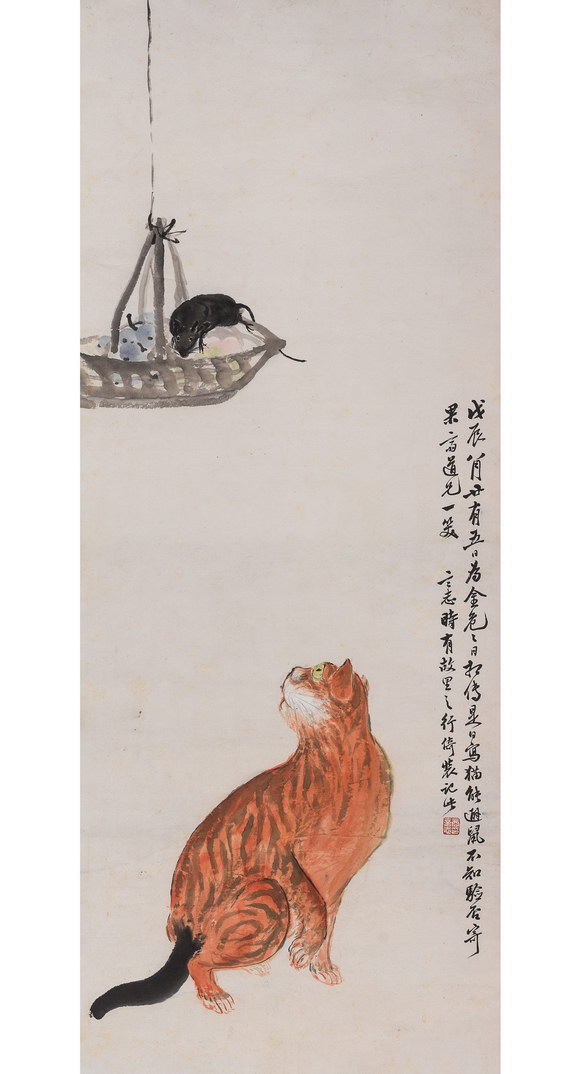 戊辰八月廿有五日為金危〻日相傳是日寫猫能避鼠不知驗否寄
果道兄一笑 志時有故里之行倚裝記此